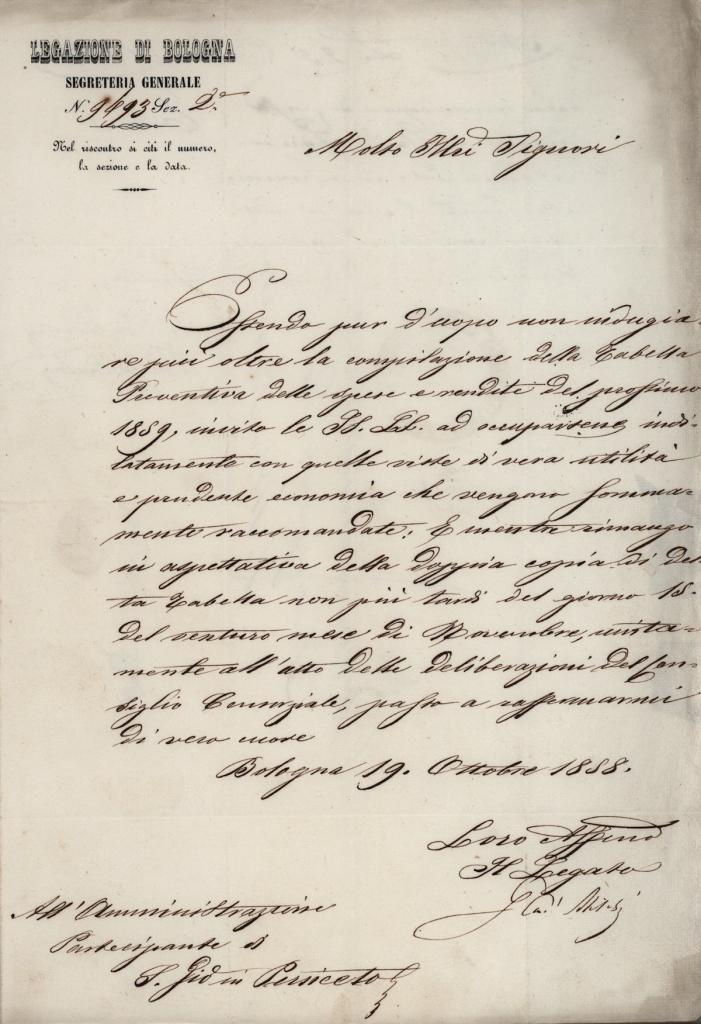 LEGAZIONE DI BOLOGNA
SEGRETERIA GENERALE
N. 9693 Sez. 2ª
Nel riscontro si citi il numero,
la sezione e la data.
Molto Illri Signori
Essendo pur d'uopo non indugia-
re più oltre la compilazione della Tabella
Preventiva delle spese e rendite del prossimo
1859, invito le SS. LL. ad occuparsene indi-
latamente con quelle viste di vera utilità
e prudente economia che vengono somma-
mente raccomandate. E mentre rimango
in aspettativa della doppia copia di det-
ta Tabella non più tardi del giorno 15.
del venturo mese di Novembre, unita-
mente all'atto delle deliberazioni del Con-
siglio Consorziale, passo a raffermarmi
di vero cuore
Bologna 19. Ottobre 1858.
Loro Affmo
Il Legato
All'Amministrazione
Partecipante di
S. Gio in Persiceto